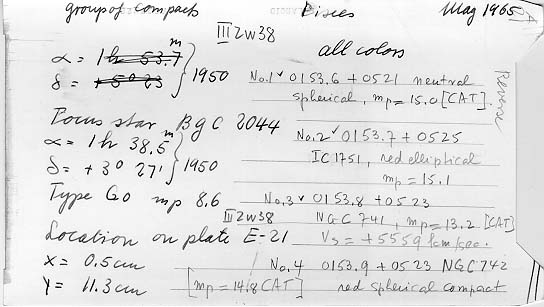 group of compact
Pisces
Mag 1965
III Zw 38
all colors
α = 1h 53.7m
δ = +5° 23
} 1950
No.1 ✓ 0153.6 + 0521 neutral
spherical, mp = 15.0 [CAT].
Reverse
Focus star BGC 2044
α = 1h 38.5m
δ = +3° 27'
} 1950
No.2 ✓ 0153.7 + 0525
IC 1751, red elliptical
mp = 15.1
Type G0 mp 8.6
No.3 ✓ 0153.8 + 0523
III Zw 38
NGC 741, mp = 13.2 [CAT]
Location on plate E-21
Vs = +5559 km/sec.
x = 0.5 cm
No.4 0153.9 + 0523 NGC 742
y = 11.3 cm
[mp = 14.8 CAT]
red spherical compact